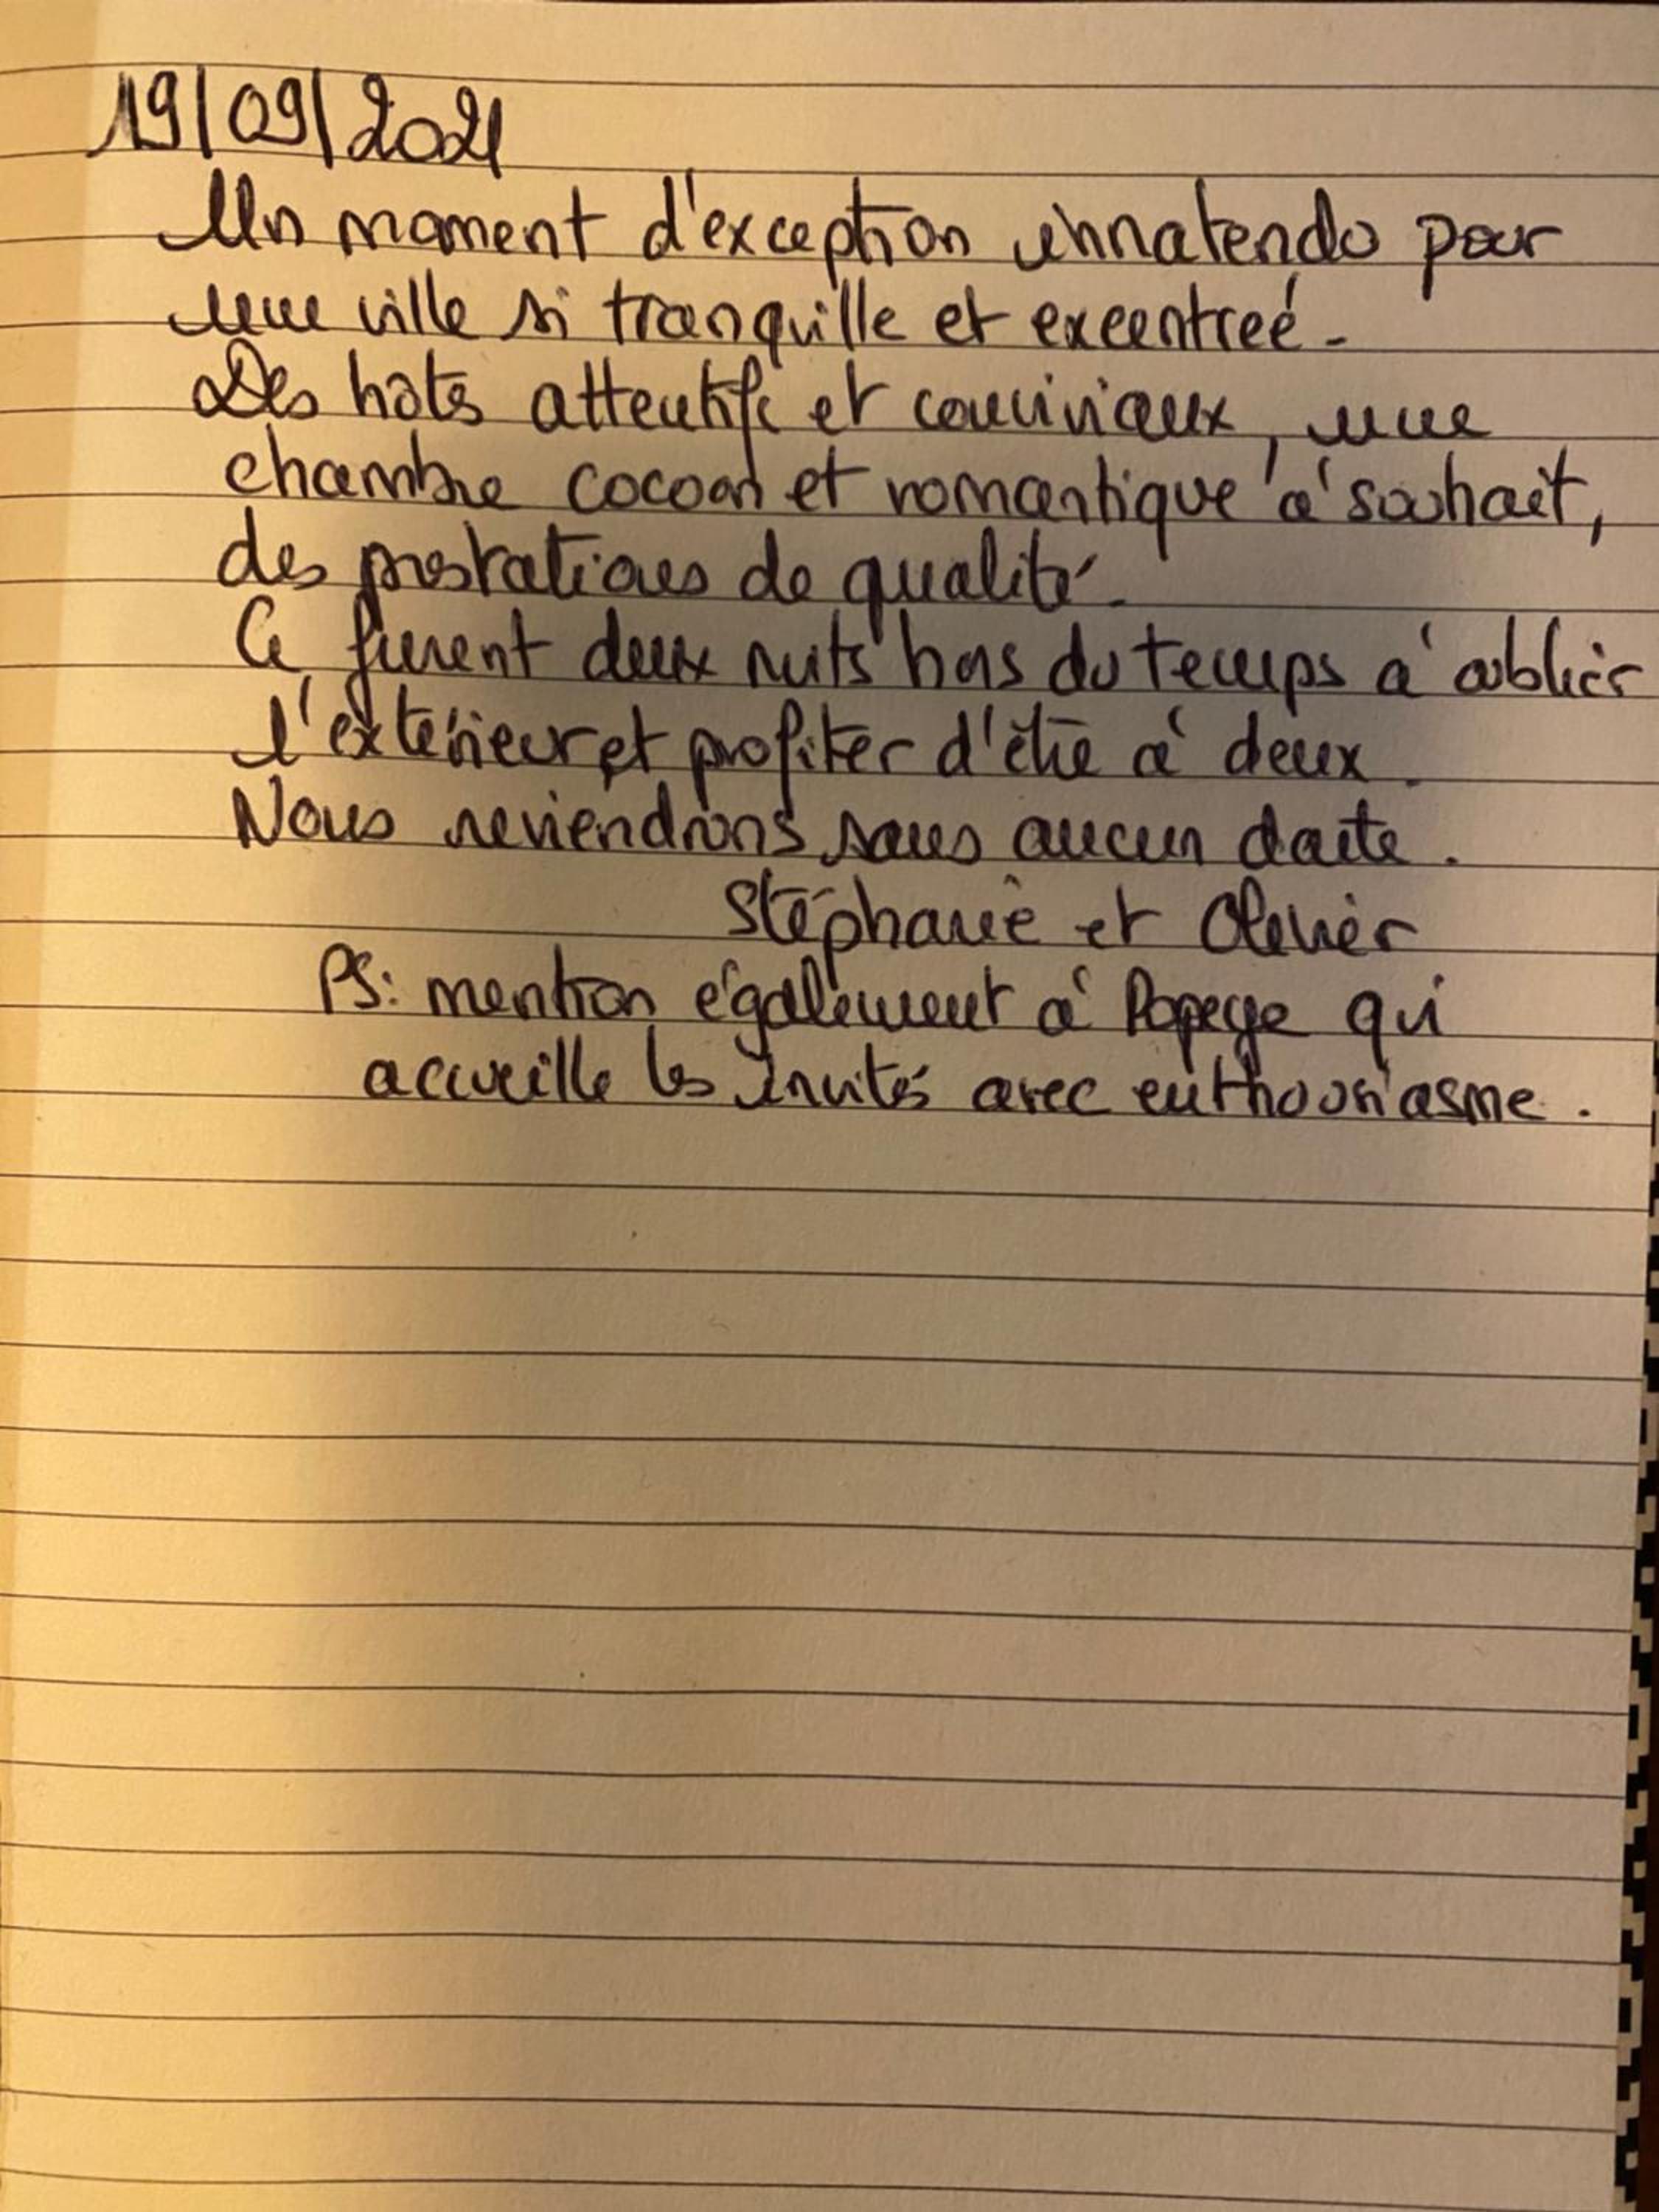 19/09/2021
Un moment d'exception innatendu pour
une ville si tranquille et excentreé.
Des hôtes attentifs et conviviaux, une
chambre cocoon et romantique à souhait,
des prestations de qualité.
Ce furent deux nuits hors du temps à oublier
l'extérieur et profiter d'être à deux.
Nous reviendrons sans aucun doute.
Stéphanie et Olivier
PS: mention également à Popeye qui
accueille les invités avec enthousiasme.